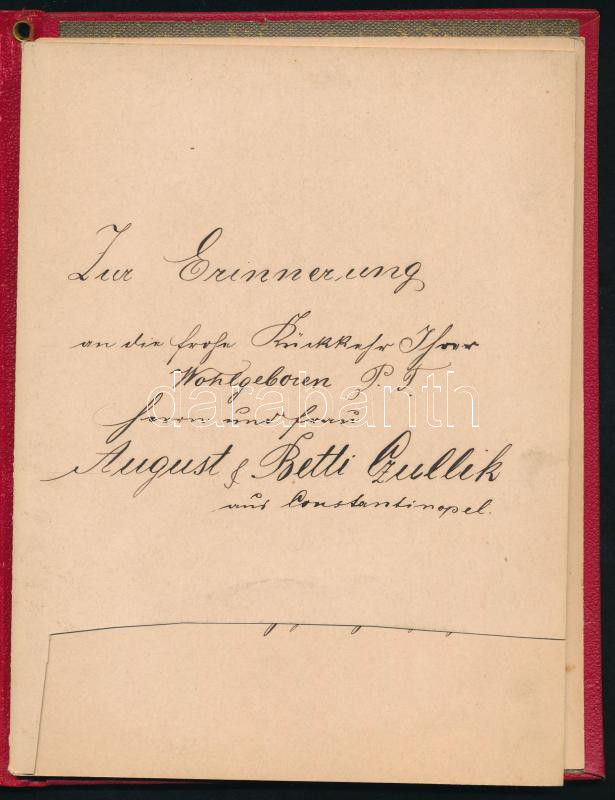 Zur Erinnerung
an die frohe Rückkehr Ihrer
Wohlgeboren P. T.
darabanth
Herrn und Frau
August & Betti Czullik
aus Constantinopel.